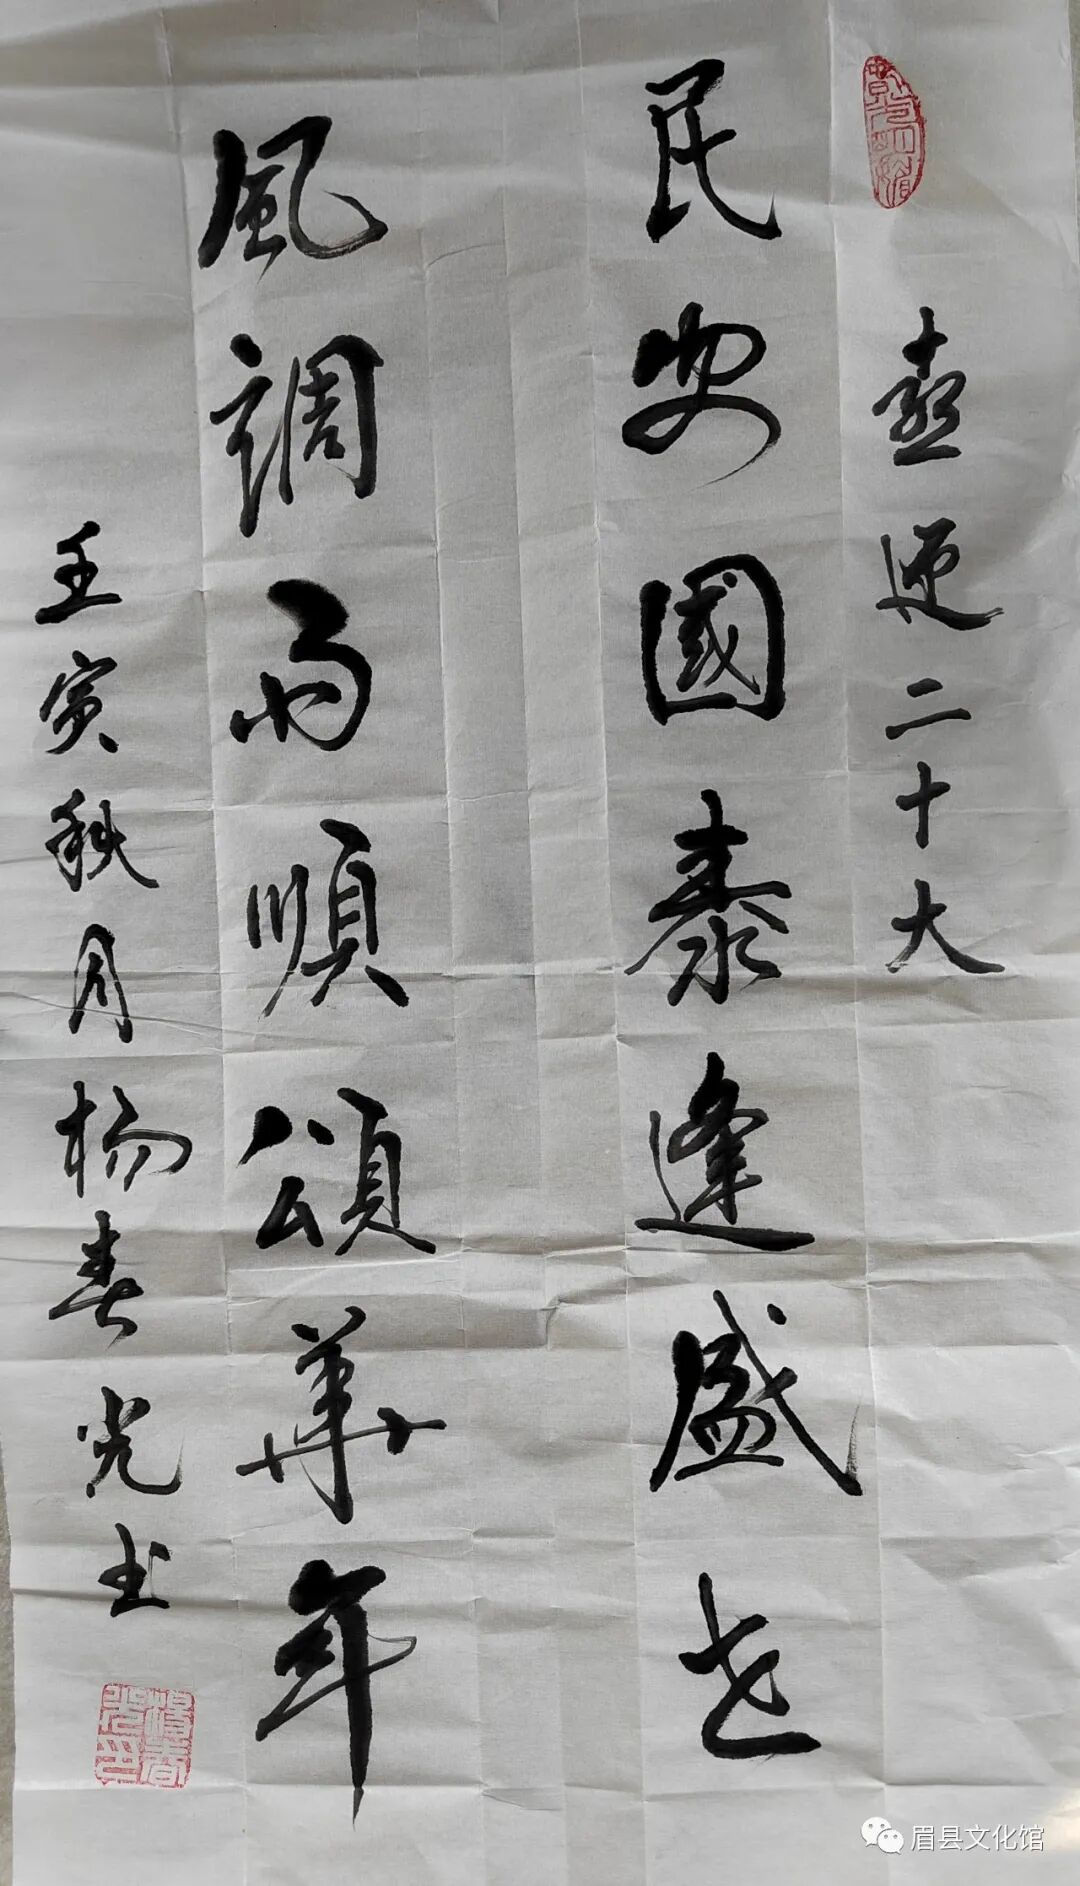 喜迎二十大
民安國泰逢盛世
風調雨順頌華年
壬寅秋月杨春光书
楊春光印
眉县文化馆